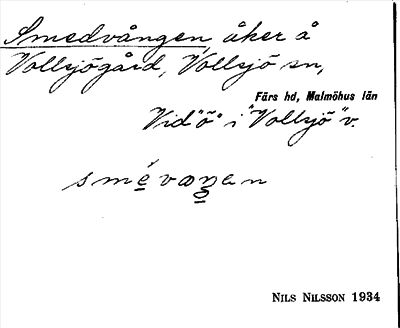 Smedvången, åker å
Vollsjögård, Vollsjö sn,
Färs hd, Malmöhus län
Vid "ö" i "Vollsjö" v.
NILS NILSSON 1934